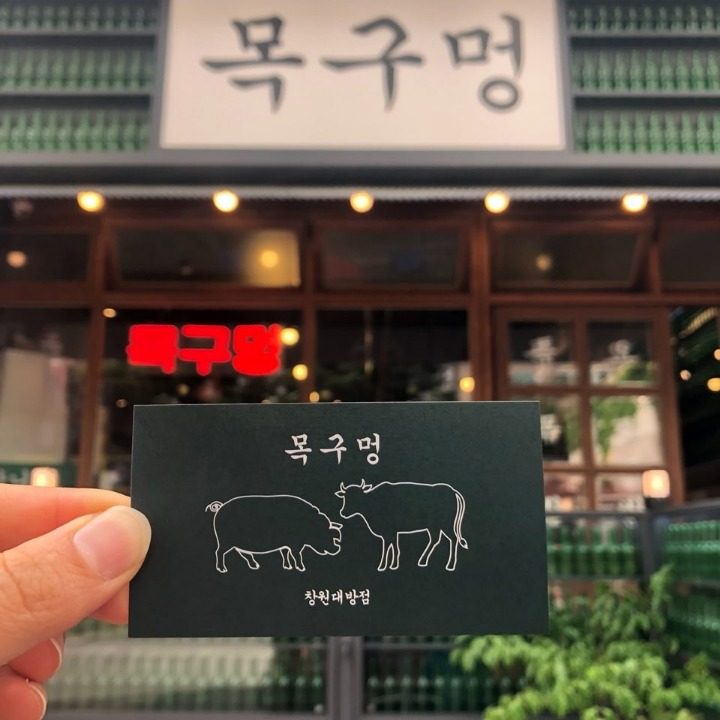 목구멍
목구멍
목구멍
창원대방점